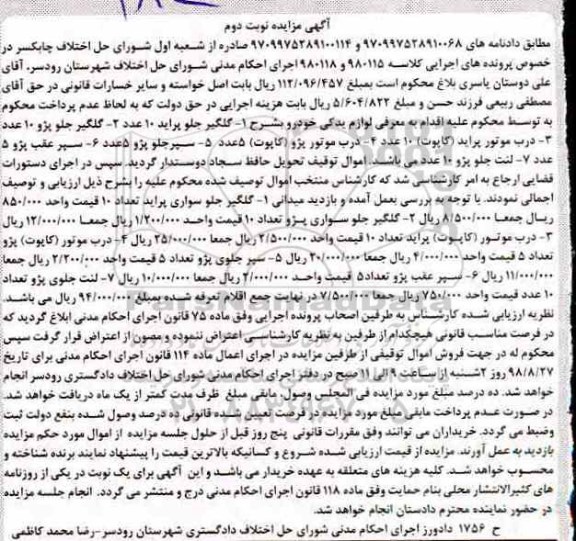 آگهی مزایده نوبت دوم
مطابق دادنامه های ۹۷۰۹۹۷۵۲۸۹۱۰۰۶۸ و ۹۷۰۹۹۷۵۲۸۹۱۰۰۱۱۴ صادره از شعبه اول شورای حل اختلاف چابکسر در
خصوص پرونده های اجرایی کلاسه ۹۸۰۱۱۵ و ۹۸۰۱۱۸ اجرای احکام مدنی شورای حل اختلاف شهرستان رودسر، آقای
علی دوستان یاسری بلاغ محکوم است بمبلغ ۱۱۲/۰۹۶/۴۵۷ ریال بابت اصل خواسته و سایر خسارات قانونی در حق آقای
مصطفی ربیعی فرزند حسن و مبلغ ۵/۶۰۴/۸۲۲ ریال بابت هزینه اجرایی در حق دولت که به لحاظ عدم پرداخت محکوم
به توسط محکوم علیه اقدام به معرفی لوازم یدکی خودرو بشرح ۱- گلگیر جلو پراید ۱۰ عدد ۲- گلگیر جلو پژو ۱۰ عدد
۳- درب موتور پراید (کاپوت) ۱۰ عدد ۴- درب موتور پژو (کاپوت) ۵عدد ۵- سپرجلو پژو ۵عدد ۶- سپر عقب پژو ۵
عدد ۷- لنت جلو پژو ۱۰ عدد می باشند. اموال توقیف تحویل حافظ سجاد دوستدار گردید. سپس در اجرای دستورات
قضایی ارجاع به امر کارشناسی شد که کارشناس منتخب اموال توصیف شده محکوم علیه را بشرح ذیل ارزیابی و توصیف
اجمالی نمودند. با توجه به بررسی بعمل آمده و بازدید میدانی ۱- گلگیر جلو سواری پراید تعداد ۱۰ قیمت واحد ۸۵۰/۰۰۰
ریال جمعا ۸/۵۰۰/۰۰۰ ریال ۲- گلگیر جلو سواری پژو تعداد ۱۰ قیمت واحد ۱/۲۰۰/۰۰۰ ریال جمعا ۱۲/۰۰۰/۰۰۰ ریال
۳- درب موتور (کاپوت) پراید تعداد ۱۰ قیمت واحد ۲/۵۰۰/۰۰۰ ریال جمعا ۲۵/۰۰۰/۰۰۰ ریال ۴- درب موتور (کاپوت) پژو
تعداد ۵ قیمت واحد ۴/۰۰۰/۰۰۰ ریال جمعا ۲۰/۰۰۰/۰۰۰ ریال ۵- سپر جلوی پژو تعداد ۵ قیمت واحد ۲/۲۰۰/۰۰۰ ریال جمعا
۱۱/۰۰۰/۰۰۰ ریال ۶- سپر عقب پژو تعداد۵ قیمت واحد ۲/۰۰۰/۰۰۰ ریال جمعا ۱۰/۰۰۰/۰۰۰ ریال ۷- لنت جلوی پژو تعداد
۱۰ عدد قیمت واحد ۷۵۰/۰۰۰ ریال جمعا ۷/۵۰۰/۰۰۰در نهایت جمع اقلام تعرفه شده بمبلغ ۹۴/۰۰۰/۰۰۰ ریال می باشد.
نظریه ارزیابی شده کارشناس به طرفین اصحاب پرونده اجرایی وفق ماده ۷۵ قانون اجرای احکام مدنی ابلاغ گردید که
در فرصت مناسب قانونی هیچکدام از طرفین به نظریه کارشناسی اعتراض ننموده و مصون از اعتراض قرار گرفت سپس
محکوم له در جهت فروش اموال توقیفی از طرفین مزایده در اجرای اعمال ماده ۱۱۴ قانون اجرای احکام مدنی برای تاریخ
۹۸/۸/۲۷ روز ۲شنبه از ساعت ۹ الی ۱۱ صبح در دفتر اجرای احکام مدنی شورای حل اختلاف دادگستری رودسر انجام
خواهد شد. ده درصد مبلغ مورد مزایده فی المجلس وصول، مابقی مبلغ ظرف مدت کمتر از یک ماه دریافت خواهد شد.
در صورت عدم پرداخت مابقی مبلغ مورد مزایده در فرصت تعیین شده قانونی ده درصد وصول شده بنفع دولت ثبت
وضبط می گردد. خریداران می توانند وفق مقررات قانونی پنج روز قبل از حلول جلسه مزایده از اموال مورد حکم مزایده
بازدید به عمل آورند. مزایده از قیمت ارزیابی شده شروع و کسانیکه بالاترین قیمت را پیشنهاد نمایند برنده شناخته و
محسوب خواهد شد. کلیه هزینه های متعلقه به عهده خریدار می باشد و این آگهی برای یک نوبت در یکی از روزنامه
های کثیرالانتشار محلی بنام حمایت وفق ماده ۱۱۸ قانون اجرای احکام مدنی درج و منتشر می گردد. انجام جلسه مزایده
در حضور نماینده محترم دادستان انجام خواهد شد.
ح ۱۷۵۶ دادورز اجرای احکام مدنی شورای حل اختلاف دادگستری شهرستان رودسر-رضا محمد کاظمی